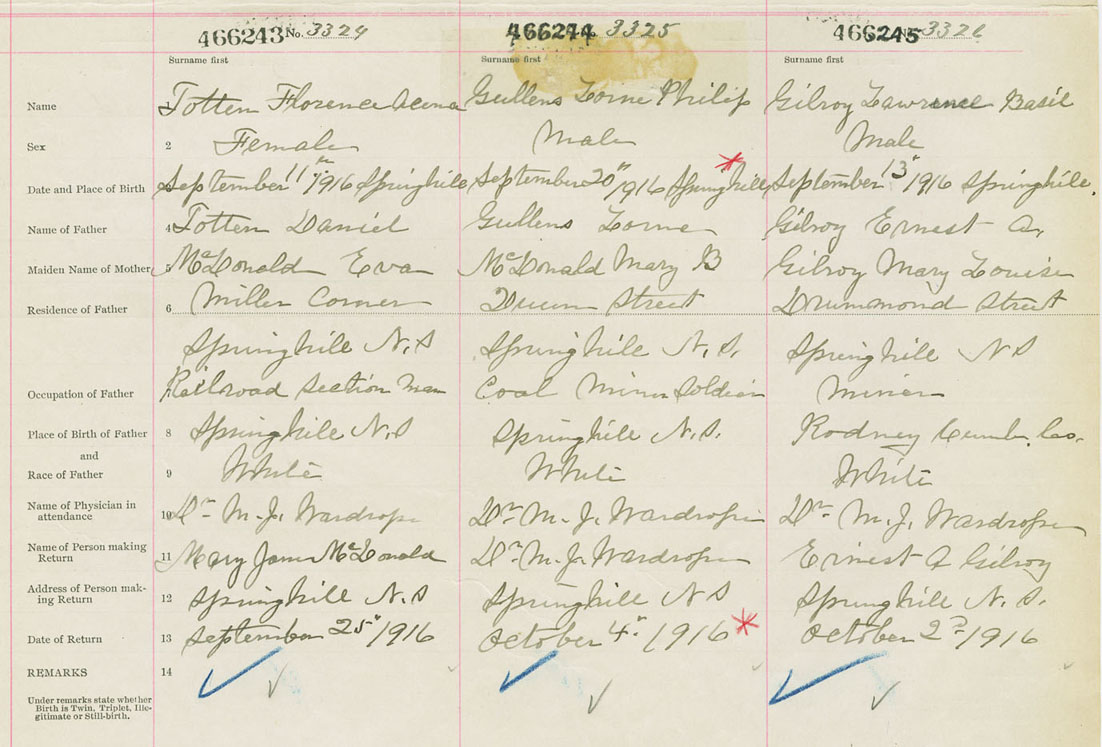 466243 No. 3324 466244 No. 3325 466245 No. 3326
Surname first Surname first Surname first
Name Totten Florence Gullens Lorne Philip Gilroy Lawrence Basil
Sex 2 Female Male Male
Date and Place of Birth September 11th 1916 Springhill September 20" 1916 Springhill * September 13" 1916 Springhill.
Name of Father 4 Totten Daniel Gullens Lorne Gilroy Ernest A.
Maiden Name of Mother 5 McDonald Eva McDonald Mary B Gilroy Mary Louise
Residence of Father 6 Miller Corner Street Drummond Street
Springhill N.S Springhill N.S. Springhill NS
Occupation of Father Railroad Section man Coal Miner Soldier Miner
Place of Birth of Father 8 Springhill N.S Springhill N.S. Rodney Cumb. Co.
and
Race of Father 9 White White White
Name of Physician in
attendance 10 Dr M.J. Wardrope Dr M.J. Wardrope Dr M.J. Wardrope
Name of Person making
Return 11 Mary Jane McDonald Dr M.J. Wardrope Ernest A Gilroy
Address of Person mak-
ing Return 12 Springhill N.S Springhill NS Springhill N.S.
Date of Return 13 September 25" 1916 October 4" 1916 * October 2d 1916
REMARKS 14
Under remarks state whether
Birth is Twin, Triplet, Ille-
gitimate or Still-birth.